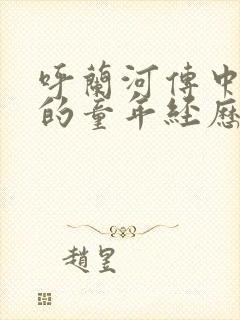 呼蘭河傳中
的童年經歷
趙昱